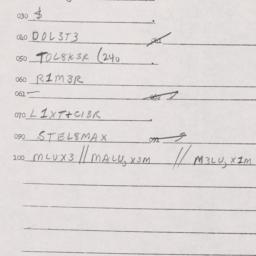 030 $
040 DOLST3
050 TOL8K3R (240
060 R1M3R
061 —
070 L1XT+C13R
090 STEL8MAX
100 MLUX3 // MALU,X3M // M3LU,X1M